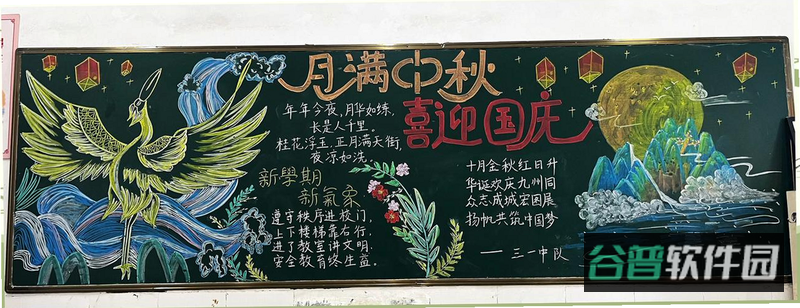 月满中秋
喜迎国庆
年年今夜，月华如练，
长是人千里。
桂花浮玉，正月满天街，
夜凉如洗。
新學期
新氣象
遵守秩序进校门，
上下楼梯靠右行，
进了教室讲文明，
安全教育终生益。
十月金秋红日升
华诞欢庆九州同
众志成城宏图展
扬帆共筑中国梦
——三一中队
谷普软件园